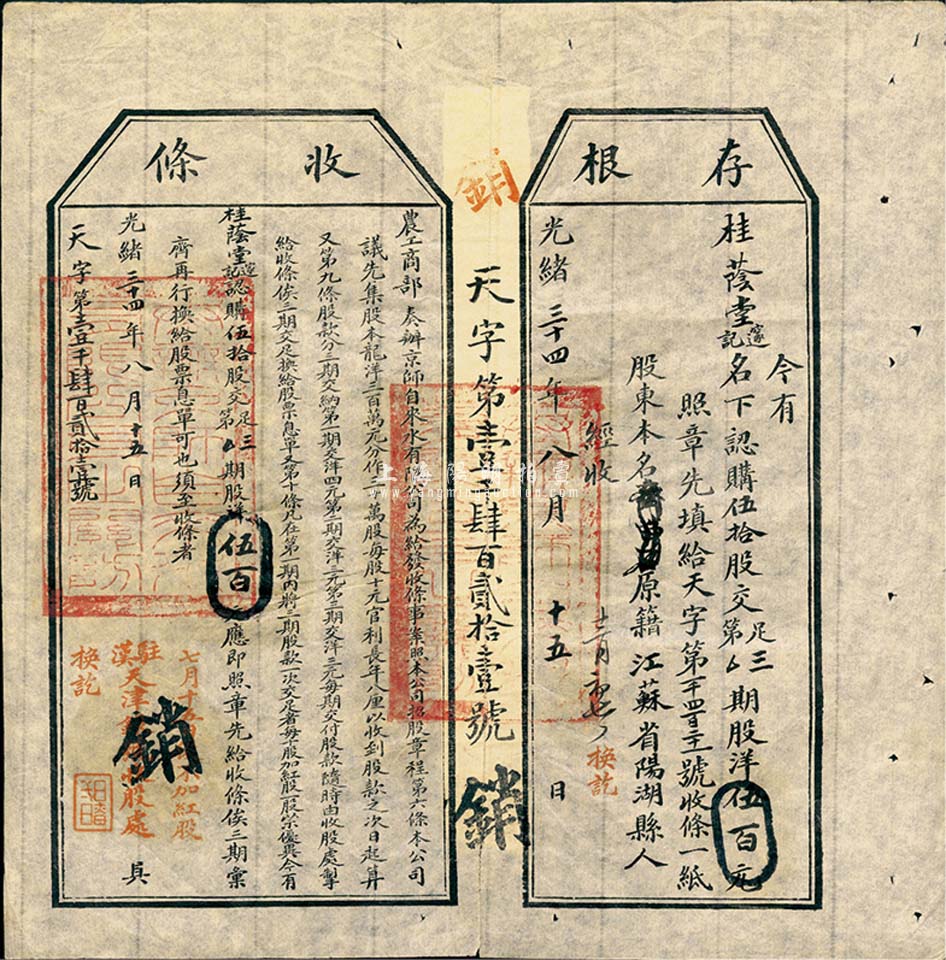 存根
今有
桂蔭堂邃記名下認購伍拾股交足三第期股洋伍百元
照章先填給天字第號收條一紙
股東本名原籍江蘇省陽湖縣人
經收 換訖
光緒三十四年八月十五日
天字第壹千肆百貳拾壹號
銷
銷
收條
農工商部奏辦京師自來水有限公司為給發收條事案照本公司招股章程第六條本公司
議先集股本龍洋三百萬元分作三十萬股每股十元官利長年八厘以收到股款之次日起算
又第九條股款分三期交納第一期交洋四元第二期交洋三元第三期交洋三元每期交付股款隨時由收股處掣
給收條俟三期交足換給股票息單又第十條凡在第一期內將三期股款一次交足者每十股加紅股一股以示優異今有
桂蔭堂邃記認購伍拾股交足三第期股洋伍百元應即照章先給收條俟三期彙
齊再行換給股票息單可也須至收條者
光緒三十四年八月十五日
天字第壹千肆百貳拾壹號
七月十五 加紅股
駐漢天津 股處
換訖
具
銷
上海陽明拍賣
www.yangmingauction.com